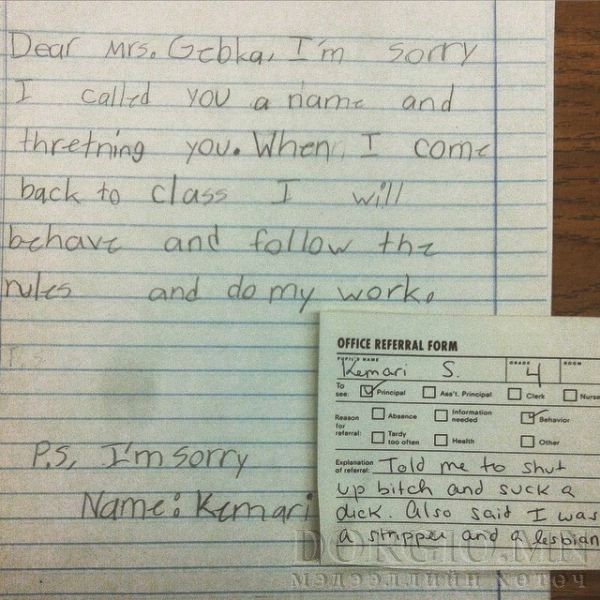 Dear Mrs. Gebka, I'm sorry
I called you a name and
thretning you. When I come
back to class I will
behave and follow the
rules and do my work.
P.S.
P.S, I'm sorry
Name: Kemari
OFFICE REFERRAL FORM
PUPIL'S NAME GRADE ROOM
Kemari S. 4
To see: Principal Ass't. Principal Clerk Nurse
Reason for referral: Absence Information needed Behavior
Tardy too often Health Other
Explanation of referral: Told me to shut
up bitch and suck a
dick. Also said I was
a stripper and a lesbian
DORGIO.MN
МЭДЭЭЛЛИЙН ХОТОЧ